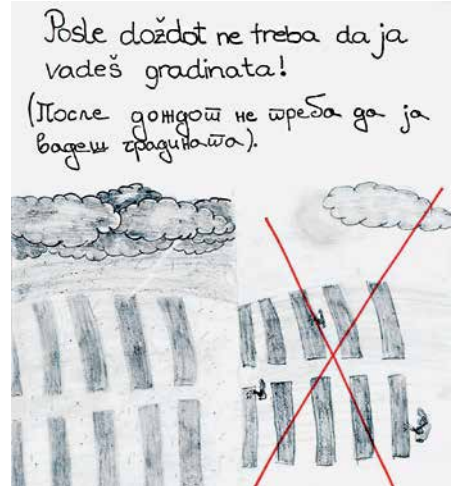 Posle doždot ne treba da ja
vadeš gradinata!
(После дождот не треба да ја
вадеш градината).